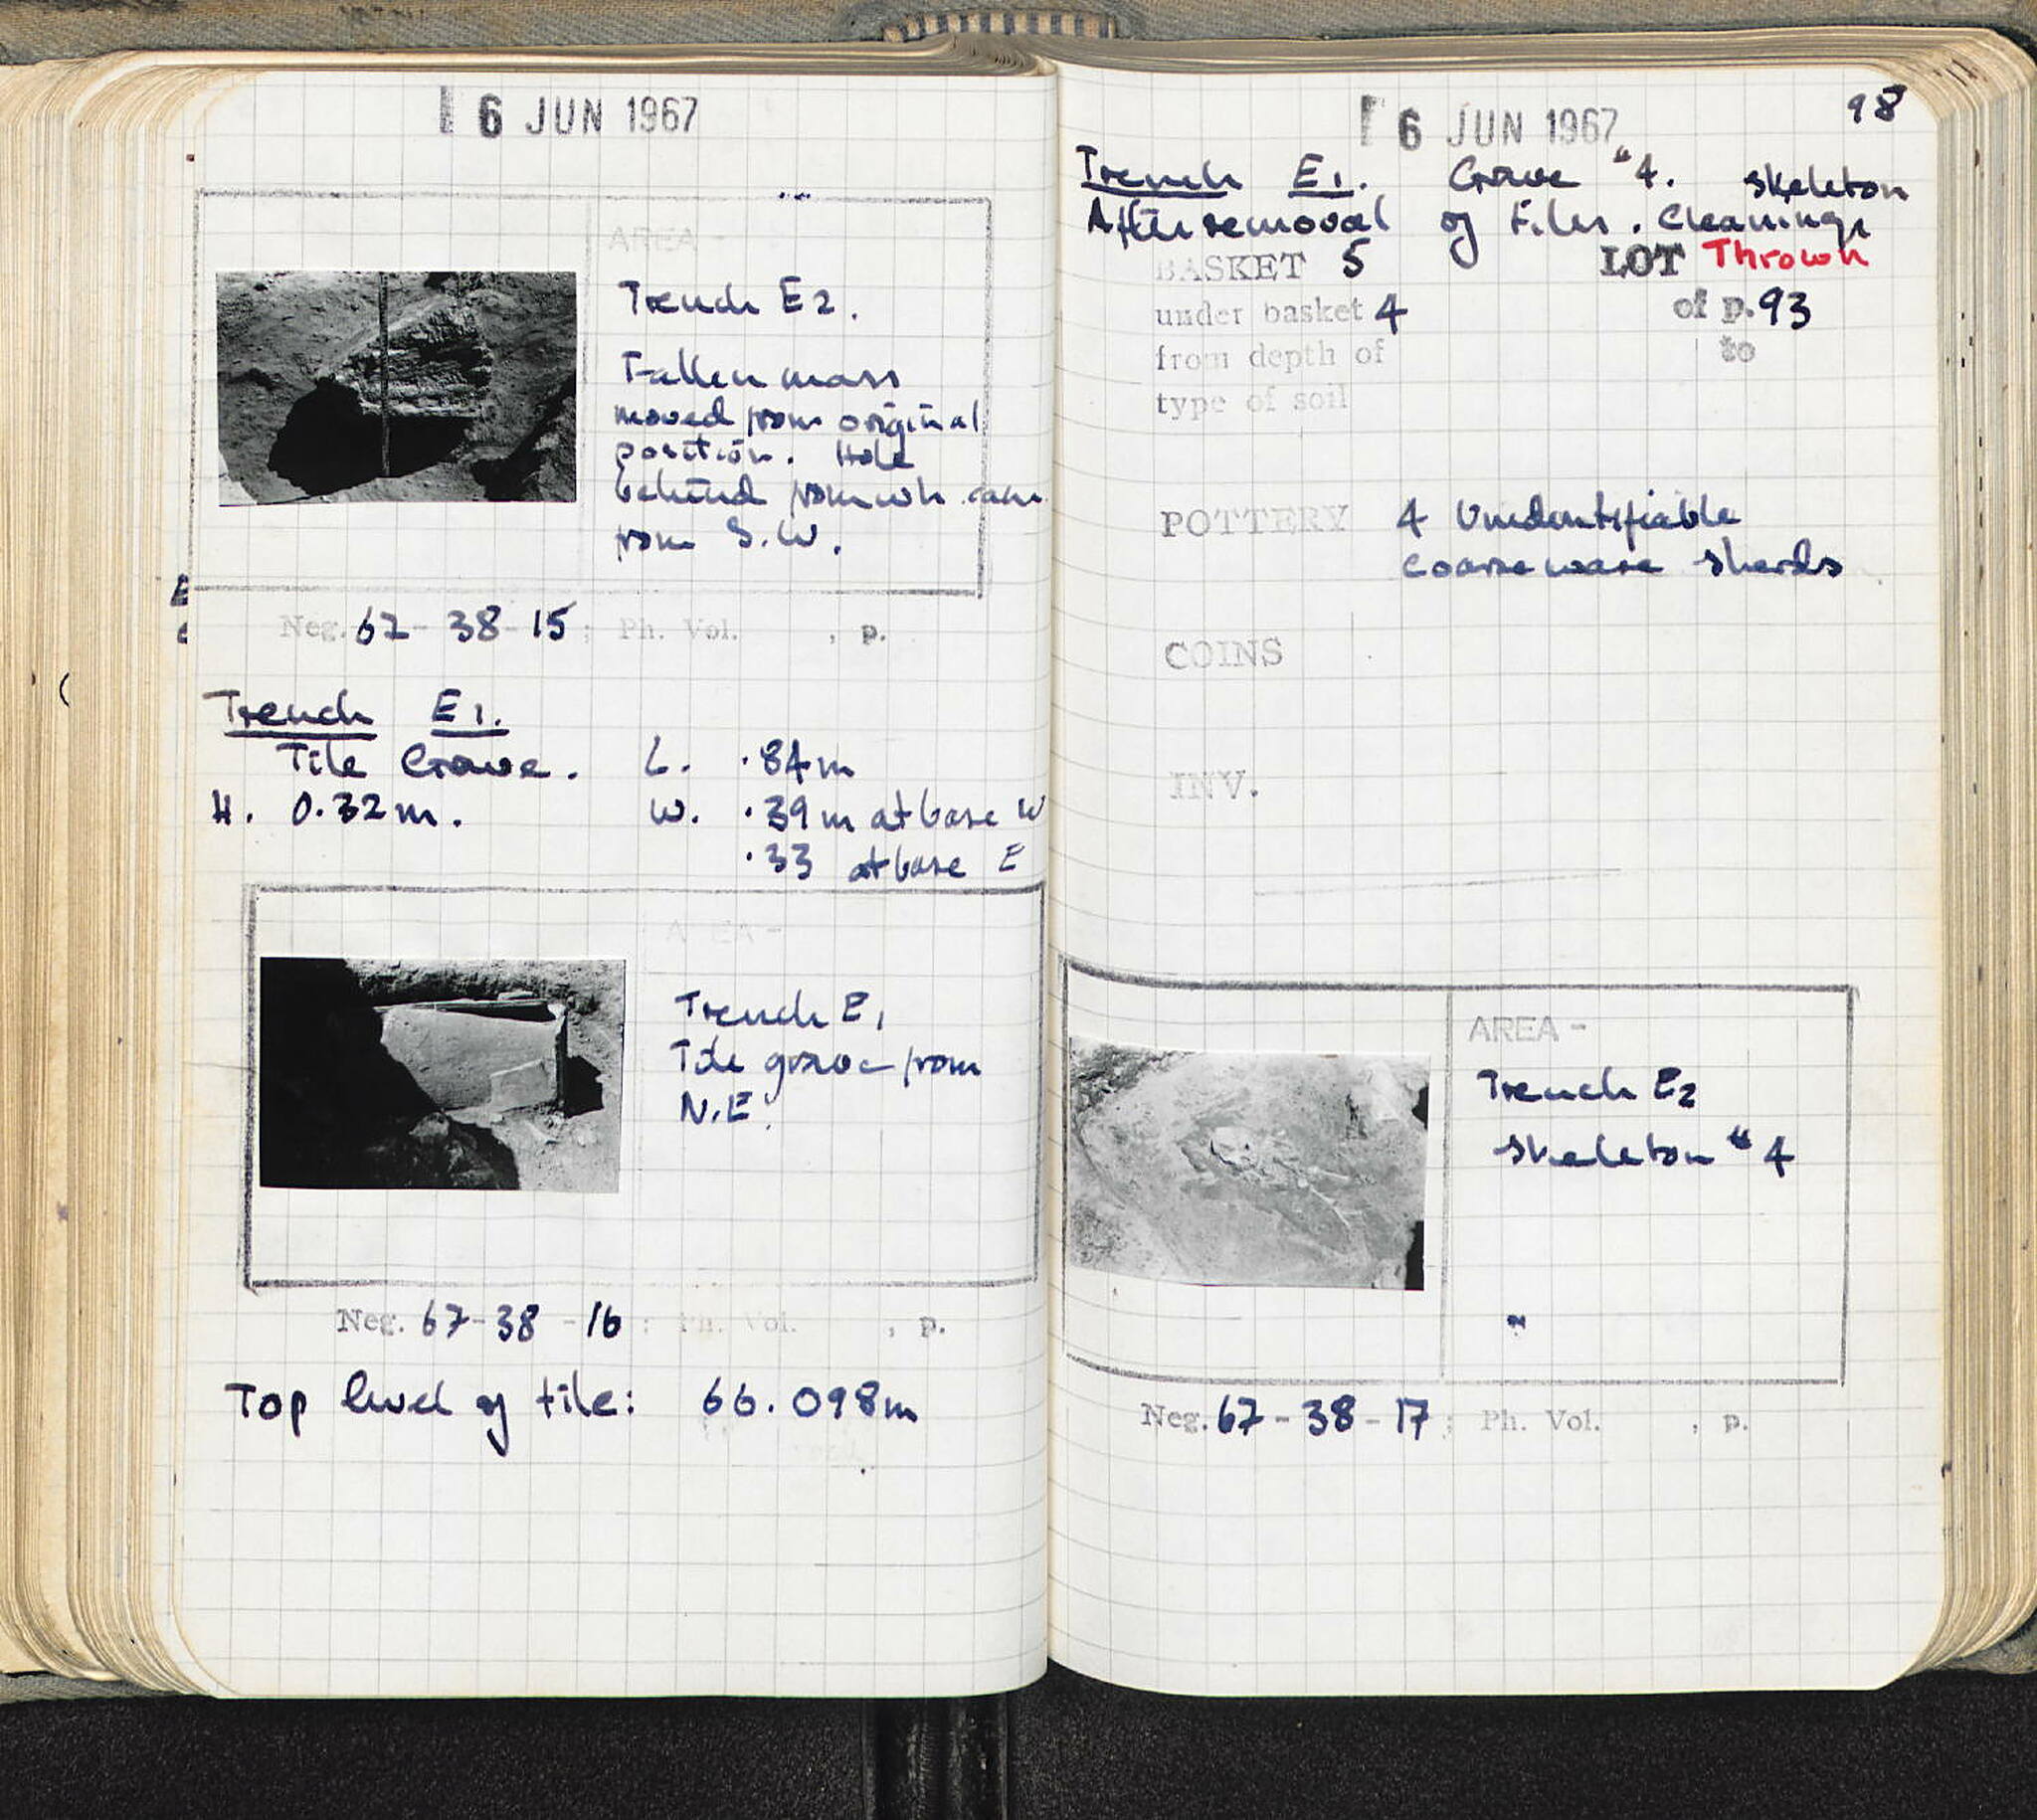 6 JUN 1967
AREA -
Trench E2.
Fallen mass
moved from original
position. Hole
behind from wh. came
from S.W.
Neg. 67-38-15; Ph. Vol. , p.
Trench E1.
Tile Grave. L. .84m
H. 0.32m. W. .39m at base W
.33 at base E
AREA -
Trench E1
Tile grave from
N.E.
Neg. 67-38-16; Ph. Vol. , p.
Top level of tile: 66.098m
98
6 JUN 1967
Trench E1. Grave "4. Skeleton
After removal of tiles. Cleanings
BASKET 5 LOT Thrown
under basket 4 of p. 93
from depth of to
type of soil
POTTERY 4 Unidentifiable
coarse ware sherds
COINS
INV.
AREA -
Trench E2
Skeleton "4
Neg. 67-38-17; Ph. Vol. , p.